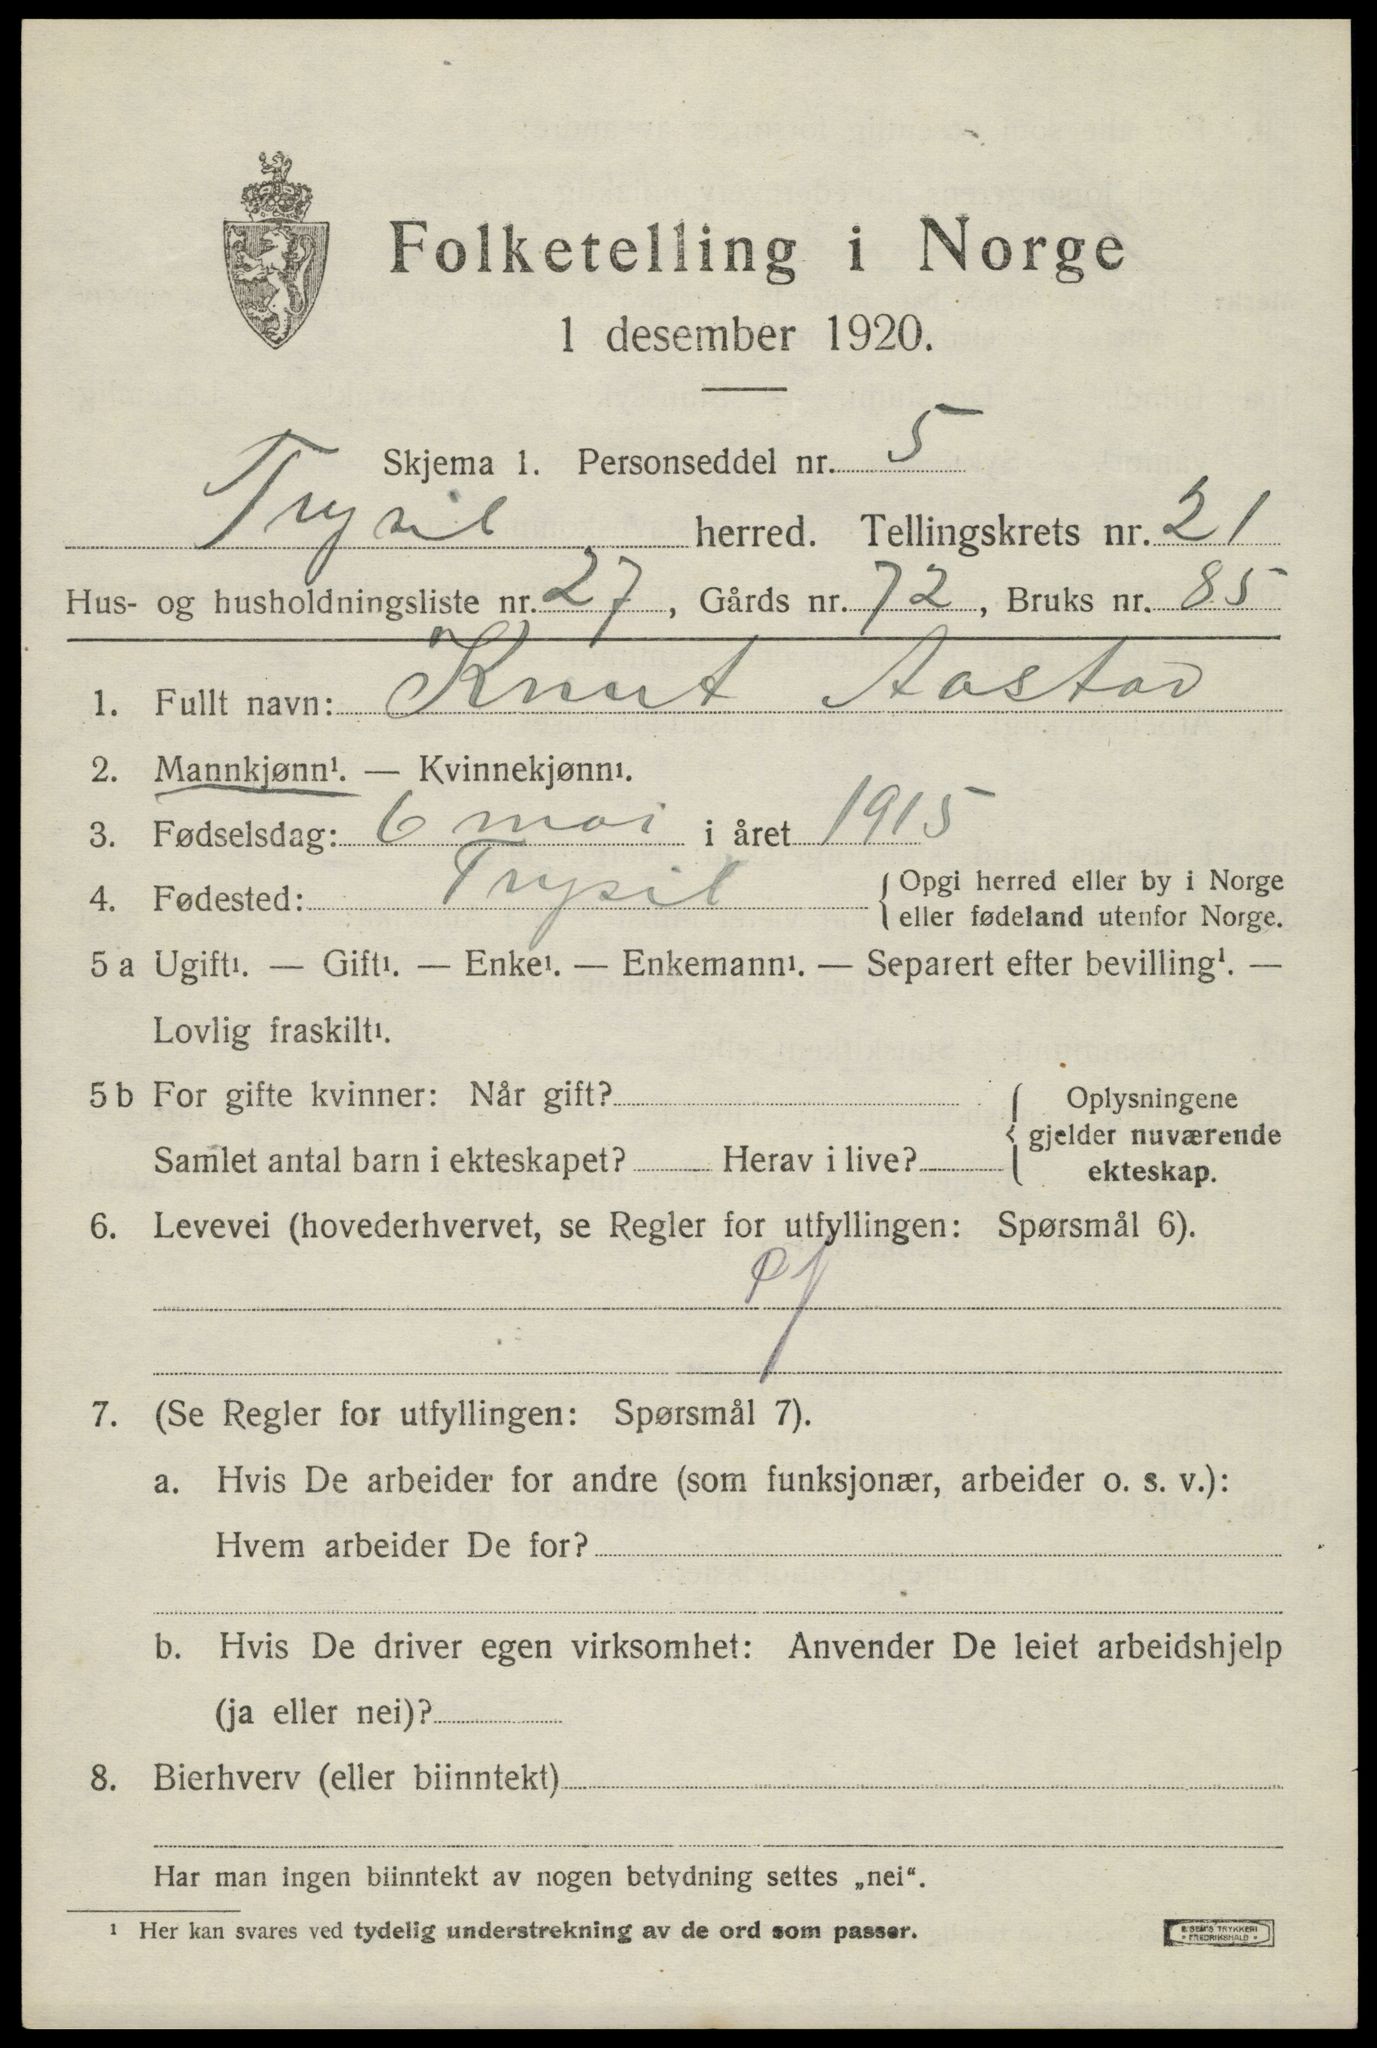 Folketelling i Norge
1 desember 1920.
Skjema 1. Personseddel nr. 5
Trysil herred. Tellingskrets nr. 21
Hus- og husholdningsliste nr. 27, Gårds nr. 72, Bruks nr. 85
1. Fullt navn: Knut Aastad
2. Mannkjønn¹. — Kvinnekjønn¹.
3. Fødselsdag: 6 mai i året 1915
4. Fødested: Trysil { Opgi herred eller by i Norge
eller fødeland utenfor Norge.
5 a Ugift¹. — Gift¹. — Enke¹. — Enkemann¹. — Separert efter bevilling¹. —
Lovlig fraskilt¹.
5 b For gifte kvinner: Når gift? { Oplysningene
gjelder nuværende
Samlet antal barn i ekteskapet? Herav i live? ekteskap.
6. Levevei (hovederhvervet, se Regler for utfyllingen: Spørsmål 6).
7. (Se Regler for utfyllingen: Spørsmål 7).
a. Hvis De arbeider for andre (som funksjonær, arbeider o. s. v.):
Hvem arbeider De for?
b. Hvis De driver egen virksomhet: Anvender De leiet arbeidshjelp
(ja eller nei)?
8. Bierhverv (eller biinntekt)
Har man ingen biinntekt av nogen betydning settes „nei“.
¹ Her kan svares ved tydelig understrekning av de ord som passer.
E. SEM'S TRYKKERI
• FREDRIKSHALD •